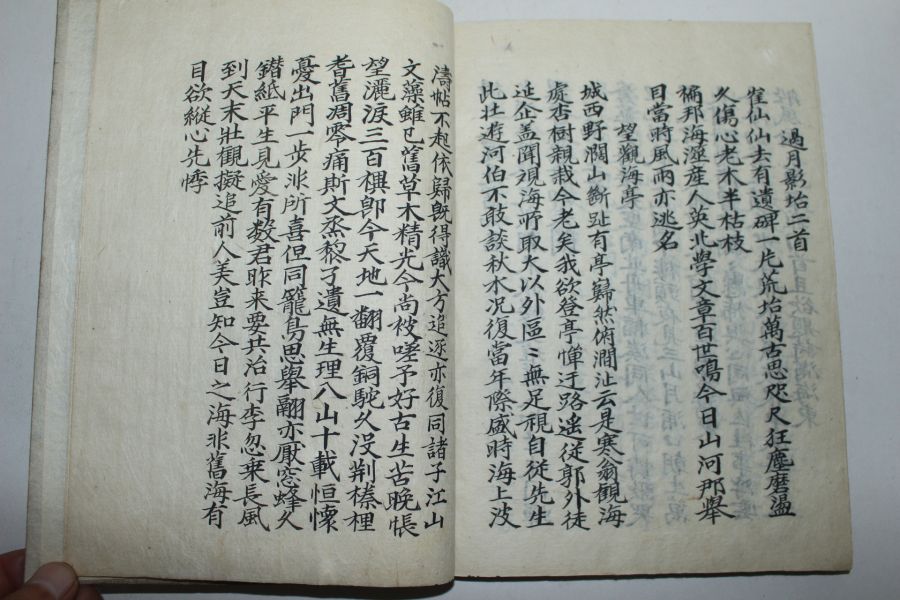 過月影坮二首
崔仙仙去有遺碑一片荒坮萬古思咫尺狂塵磨盪
久傷心老木半枯枝
褊邦海澨産人英北學文章百世鳴今日山河那擧
目當時風雨亦逃名
望觀海亭
城西野濶山斷趾有亭巋然俯澗沚云是寒翁觀海
處杏樹親栽今老矣我欲登亭憚迂路遥従郭外徒
延企盖聞視海所取大以外區〻無足視自従先生
此壮遊河伯不敢談秋水況復當年際盛時海上波
濤帖不起依歸旣得議大方追逐亦復同諸子江山
文藻雖已舊草木精光今尚被嗟予好古生苦晚悵
望灑淚三百禩卽今天地一翻覆銅駝久没荆榛裡
耆舊凋零痛斯文烝黎孑遺無生理八山十載恒懷
憂出門一步非所喜但同籠鳥思擧翮亦厭窓蜂久
鑚紙平生見愛有数君昨来要共治行李忽乗長風
到天末壯觀擬追前人美豈知今日之海非舊海有
目欲縱心先悸